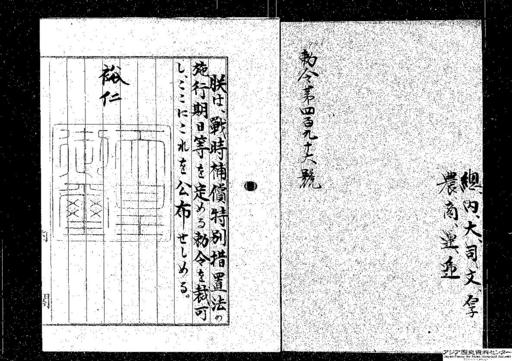 總、内、大、司、文、厚
農、商、運、逓
勅令第四百九十六號
朕は、戰時補償特別措置法の
施行期日等を定める勅令を裁可
し、ここにこれを公布せしめる。
裕仁
天皇
御璽
アジア歴史資料センター